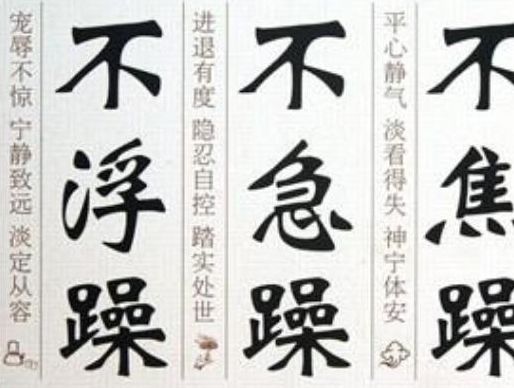 宠辱不惊 宁静致远 淡定从容
不浮躁
进退有度 隐忍自控 踏实处世
不急躁
平心静气 淡看得失 神宁体安
不焦躁